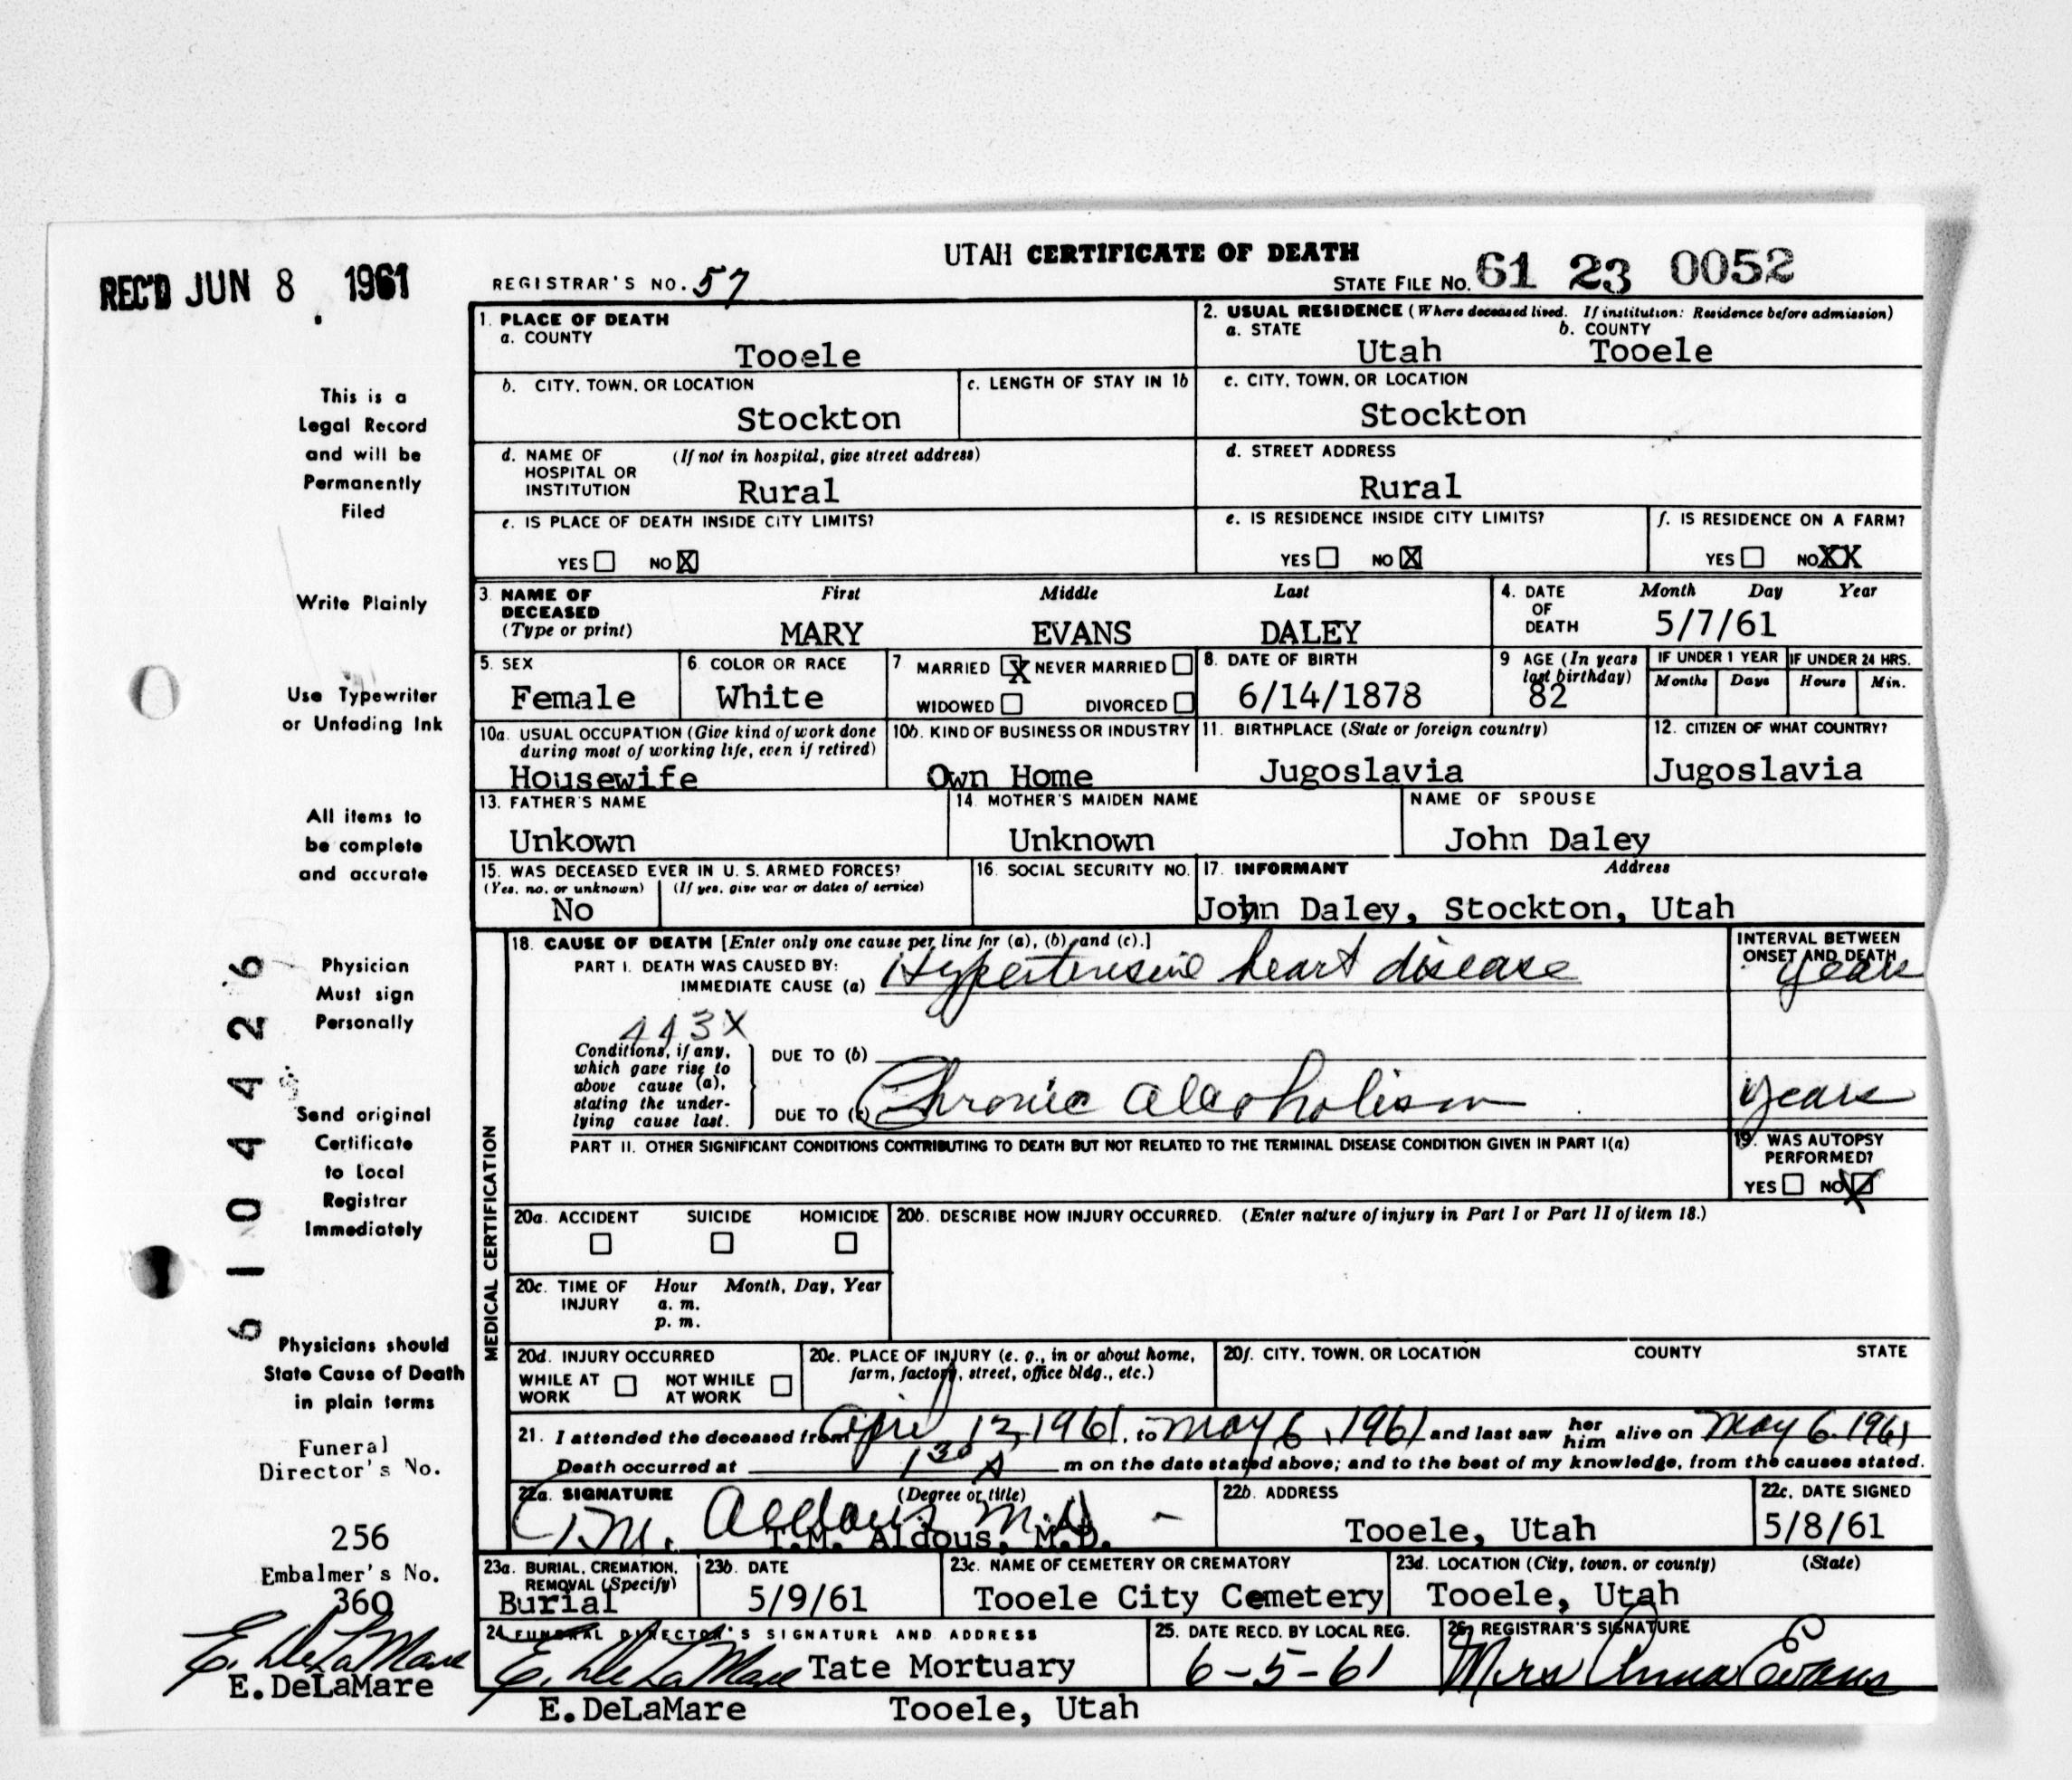 UTAH CERTIFICATE OF DEATH
REC'D JUN 8 1961
REGISTRAR'S NO. 57
STATE FILE NO. 61 23 0052
This is a
Legal Record
and will be
Permanently
Filed
Write Plainly
Use Typewriter
or Unfading Ink
All items to
be complete
and accurate
Physician
Must sign
Personally
Send original
Certificate
to Local
Registrar
Immediately
Physicians should
State Cause of Death
in plain terms
Funeral
Director's No.
256
Embalmer's No.
360
E. DeLaMare
E.DeLaMare
6104426
1. PLACE OF DEATH
a. COUNTY
Tooele
2. USUAL RESIDENCE (Where deceased lived. If institution: Residence before admission)
a. STATE b. COUNTY
Utah Tooele
b. CITY, TOWN, OR LOCATION
Stockton
c. LENGTH OF STAY IN 1b
c. CITY, TOWN, OR LOCATION
Stockton
d. NAME OF (If not in hospital, give street address)
HOSPITAL OR
INSTITUTION Rural
d. STREET ADDRESS
Rural
e. IS PLACE OF DEATH INSIDE CITY LIMITS?
YES NO X
e. IS RESIDENCE INSIDE CITY LIMITS?
YES NO X
f. IS RESIDENCE ON A FARM?
YES NO XX
3. NAME OF First Middle Last
DECEASED
(Type or print) MARY EVANS DALEY
4. DATE Month Day Year
OF
DEATH 5/7/61
5. SEX
Female
6. COLOR OR RACE
White
7. MARRIED X NEVER MARRIED
WIDOWED DIVORCED
8. DATE OF BIRTH
6/14/1878
9 AGE (In years
last birthday)
82
IF UNDER 1 YEAR
Months Days
IF UNDER 24 HRS.
Hours Min.
10a. USUAL OCCUPATION (Give kind of work done
during most of working life, even if retired)
Housewife
10b. KIND OF BUSINESS OR INDUSTRY
Own Home
11. BIRTHPLACE (State or foreign country)
Jugoslavia
12. CITIZEN OF WHAT COUNTRY?
Jugoslavia
13. FATHER'S NAME
Unkown
14. MOTHER'S MAIDEN NAME
Unknown
NAME OF SPOUSE
John Daley
15. WAS DECEASED EVER IN U. S. ARMED FORCES?
(Yes, no, or unknown) (If yes, give war or dates of service)
No
16. SOCIAL SECURITY NO.
17. INFORMANT Address
John Daley, Stockton, Utah
MEDICAL CERTIFICATION
18. CAUSE OF DEATH [Enter only one cause per line for (a), (b) and (c).]
PART I. DEATH WAS CAUSED BY:
IMMEDIATE CAUSE (a) Hypertensive heart disease
INTERVAL BETWEEN
ONSET AND DEATH
years
443X
Conditions, if any,
which gave rise to
above cause (a),
stating the under-
lying cause last.
DUE TO (b)
DUE TO (c) Chronic alcoholism
years
PART II. OTHER SIGNIFICANT CONDITIONS CONTRIBUTING TO DEATH BUT NOT RELATED TO THE TERMINAL DISEASE CONDITION GIVEN IN PART I(a)
19. WAS AUTOPSY
PERFORMED?
YES NO X
20a. ACCIDENT SUICIDE HOMICIDE
20b. DESCRIBE HOW INJURY OCCURRED. (Enter nature of injury in Part I or Part II of item 18.)
20c. TIME OF Hour Month, Day, Year
INJURY a. m.
p. m.
20d. INJURY OCCURRED
WHILE AT NOT WHILE
WORK AT WORK
20e. PLACE OF INJURY (e. g., in or about home,
farm, factory, street, office bldg., etc.)
20f. CITY, TOWN, OR LOCATION COUNTY STATE
21. I attended the deceased from April 12, 1961, to May 6, 1961 and last saw her him alive on May 6, 1961
Death occurred at 1 30 A m on the date stated above; and to the best of my knowledge, from the causes stated.
22a. SIGNATURE (Degree or title)
T.M. Aldous M.D.
T.M. Aldous, M.D.
22b. ADDRESS
Tooele, Utah
22c. DATE SIGNED
5/8/61
23a. BURIAL, CREMATION,
REMOVAL (Specify)
Burial
23b. DATE
5/9/61
23c. NAME OF CEMETERY OR CREMATORY
Tooele City Cemetery
23d. LOCATION (City, town, or county) (State)
Tooele, Utah
24 FUNERAL DIRECTOR'S SIGNATURE AND ADDRESS
E. DeLaMare Tate Mortuary
E.DeLaMare Tooele, Utah
25. DATE RECD. BY LOCAL REG.
6-5-61
26. REGISTRAR'S SIGNATURE
Mrs Anna Evans